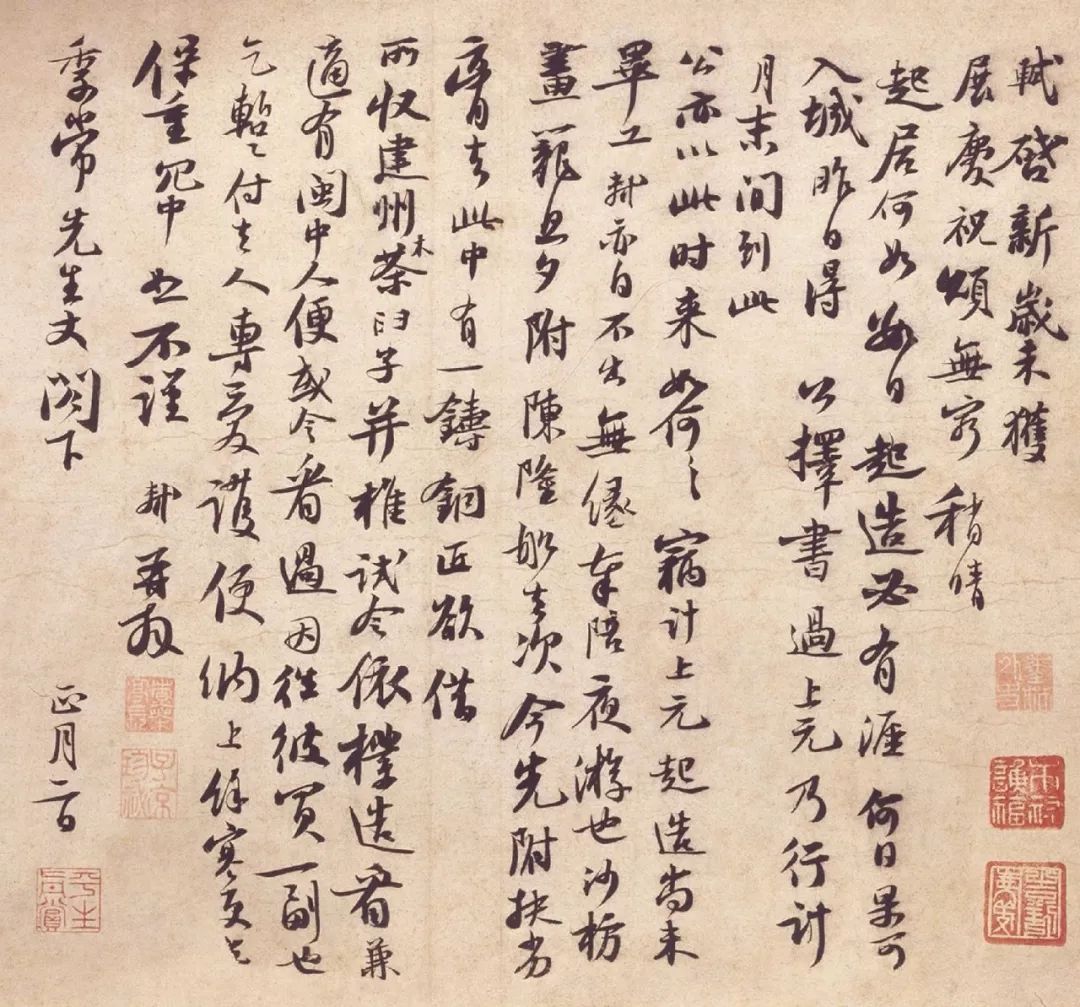 軾啓新歲未獲
展慶祝頌無窮稍晴
起居何如數日起造必有涯何日果可
入城昨日得公擇書過上元乃行計
月末间到此
公亦以此时来如何々竊计上元起造尚未
畢工軾亦自不出無緣奉陪夜游也沙枋
畫籠旦夕附陳隆船去次今先附扶劣
膏去此中有一鑄銅匠欲借
所收建州木茶臼子并椎試令依樣造看兼
適有閩中人便或令看過因往彼買一副也
乞暫付去人專愛護便納上餘寒更乞
保重冗中恕不謹軾再拜
季常先生丈閣下
正月二日